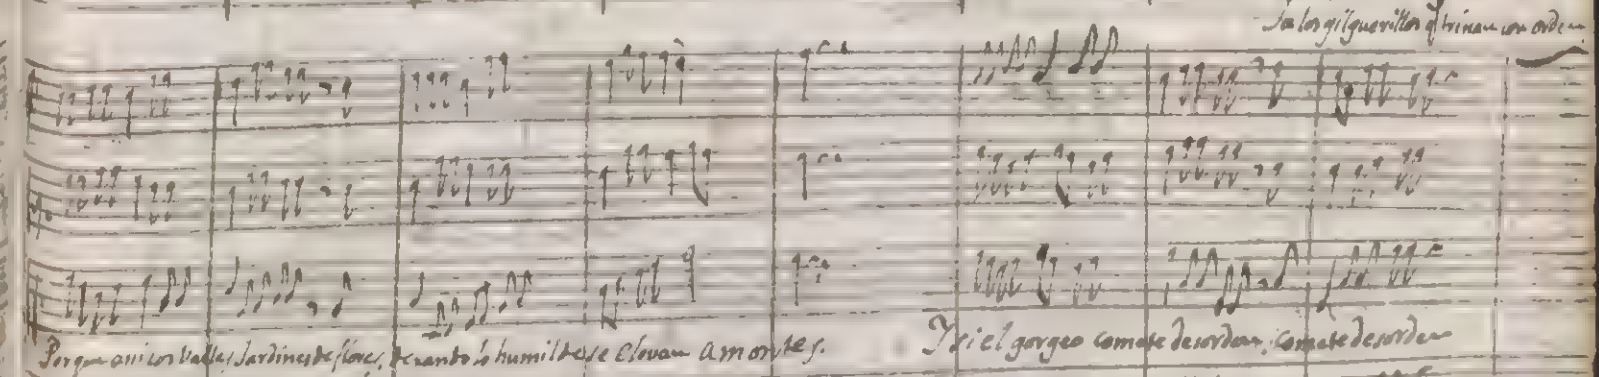 los gilguerillos q trinan con orden
Porque ani los Valles Jardines de flores, humildes se elevan a montes.
Y si el gorgeo comete desorden, comete desorden